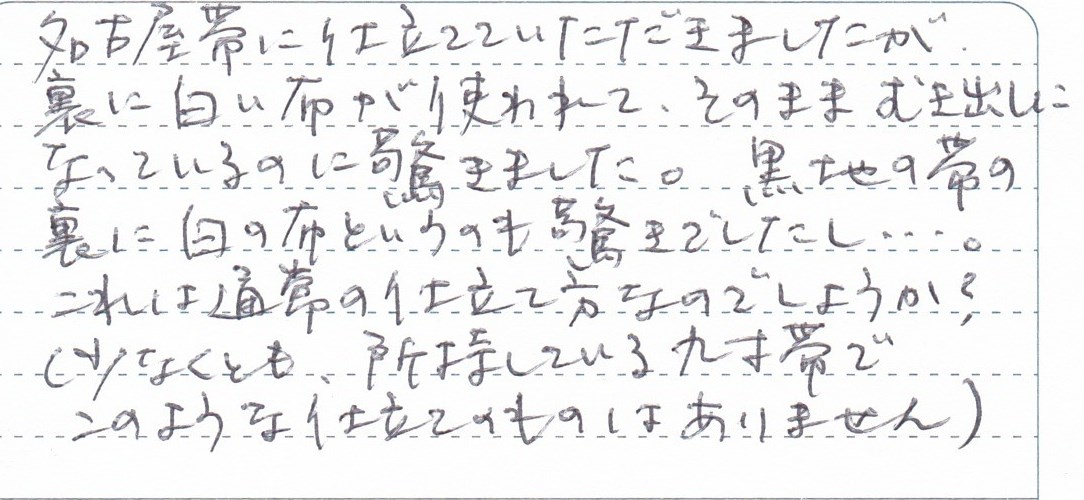 名古屋帯に仕立てていただきましたが
裏に白い布が使われて、そのままむき出しに
なっているのに驚きました。黒地の帯の
裏に白の布というのも驚きでしたし…。
これは通常の仕立て方なのでしょうか？
（少なくとも、所持している九寸帯で
このような仕立てのものはありません）